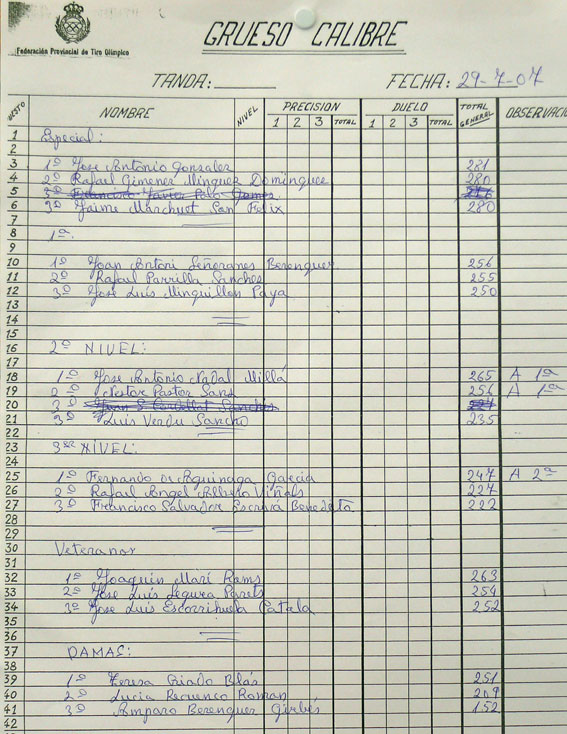 Federación Provincial de Tiro Olímpico
GRUESO CALIBRE
TANDA: FECHA: 29-7-07
NOMBRE NIVEL PRECISION DUELO TOTAL GENERAL OBSERVACI
1 2 3 TOTAL 1 2 3 TOTAL
1 Especial:
2
3 1º Jose Antonio Gonzalez 281
4 2º Rafael Gimenez Minguez Dominguez 280
5 3º Francisco Javier
6 3º Jaime Marchuet San Felix 280
7
8 1ª.
9
10 1º Joan Antoni Señoranes Berenguer 256
11 2º Rafael Parrilla Sanches 255
12 3º Jose Luís Minguillon Paya 250
13
14
15
16 2º NIVEL:
17
18 1º Jose Antonio Nadal Millá 265 A 1ª
19 2º Nestor Pastor Sanz 256 A 1ª
20 3º
21 3º Luis Verdu Sancho 235
22
23 3er NIVEL:
24
25 1º Fernando de Aguinaga Garcia 247 A 2ª
26 2º Rafael Angel Albero Viñals 227
27 3º Francisco Salvador Escrivá Benedito 222
28
29
30 Veteranos
31
32 1º Joaquin Marí Rams 263
33 2º Jose Luís Segura Parets 254
34 3º Jose Luís Escorrihuela Catala 252
35
36
37 DAMAS:
38
39 1º Teresa Criado Blás 251
40 2º Lucia Recuenco Roman 209
41 3º Amparo Berenguer Girbés 152
42